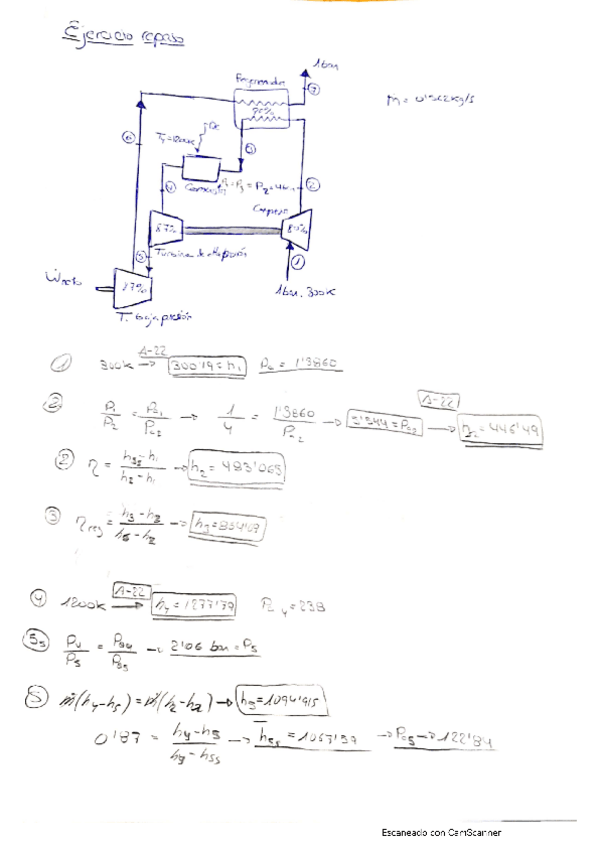 Ejercicio repaso
1bar
Regenerador
⑦
ṁ = 0'562 kg/s
90%
T4=1200K
Qc
⑥
③
P4=P3=P2=4bar
②
④
Combustión
Compresor
87%
80%
⑤
Turbina de alta presión
①
Ẇneto
87%
1bar, 300K
T. baja presión
① 300K → A-22 300'19=h1 Pr1 = 1'3860
② P1/P2 = Pr1/Pr2 → 1/4 = 1'3860/Pr2 → 5'544=Pr2 → A-22 h2s=446'49
② η = (h2s-h1)/(h2-h1) → h2 = 483'065
③ ηreg = (h3-h2)/(h6-h2) → h3=854'
④ 1200K → A-22 h4=1277'79 Pr4=238
⑤s P4/P5 = Pr4/Pr5 → 2'06 bar=P5
⑤ ṁ(h4-h5)=ṁ(h2-h1) → h5=1094'915
0'87 = (h4-h5)/(h4-h5s) → h5s=1067'59 → Pr5 → 122'84
Escaneado con CamScanner